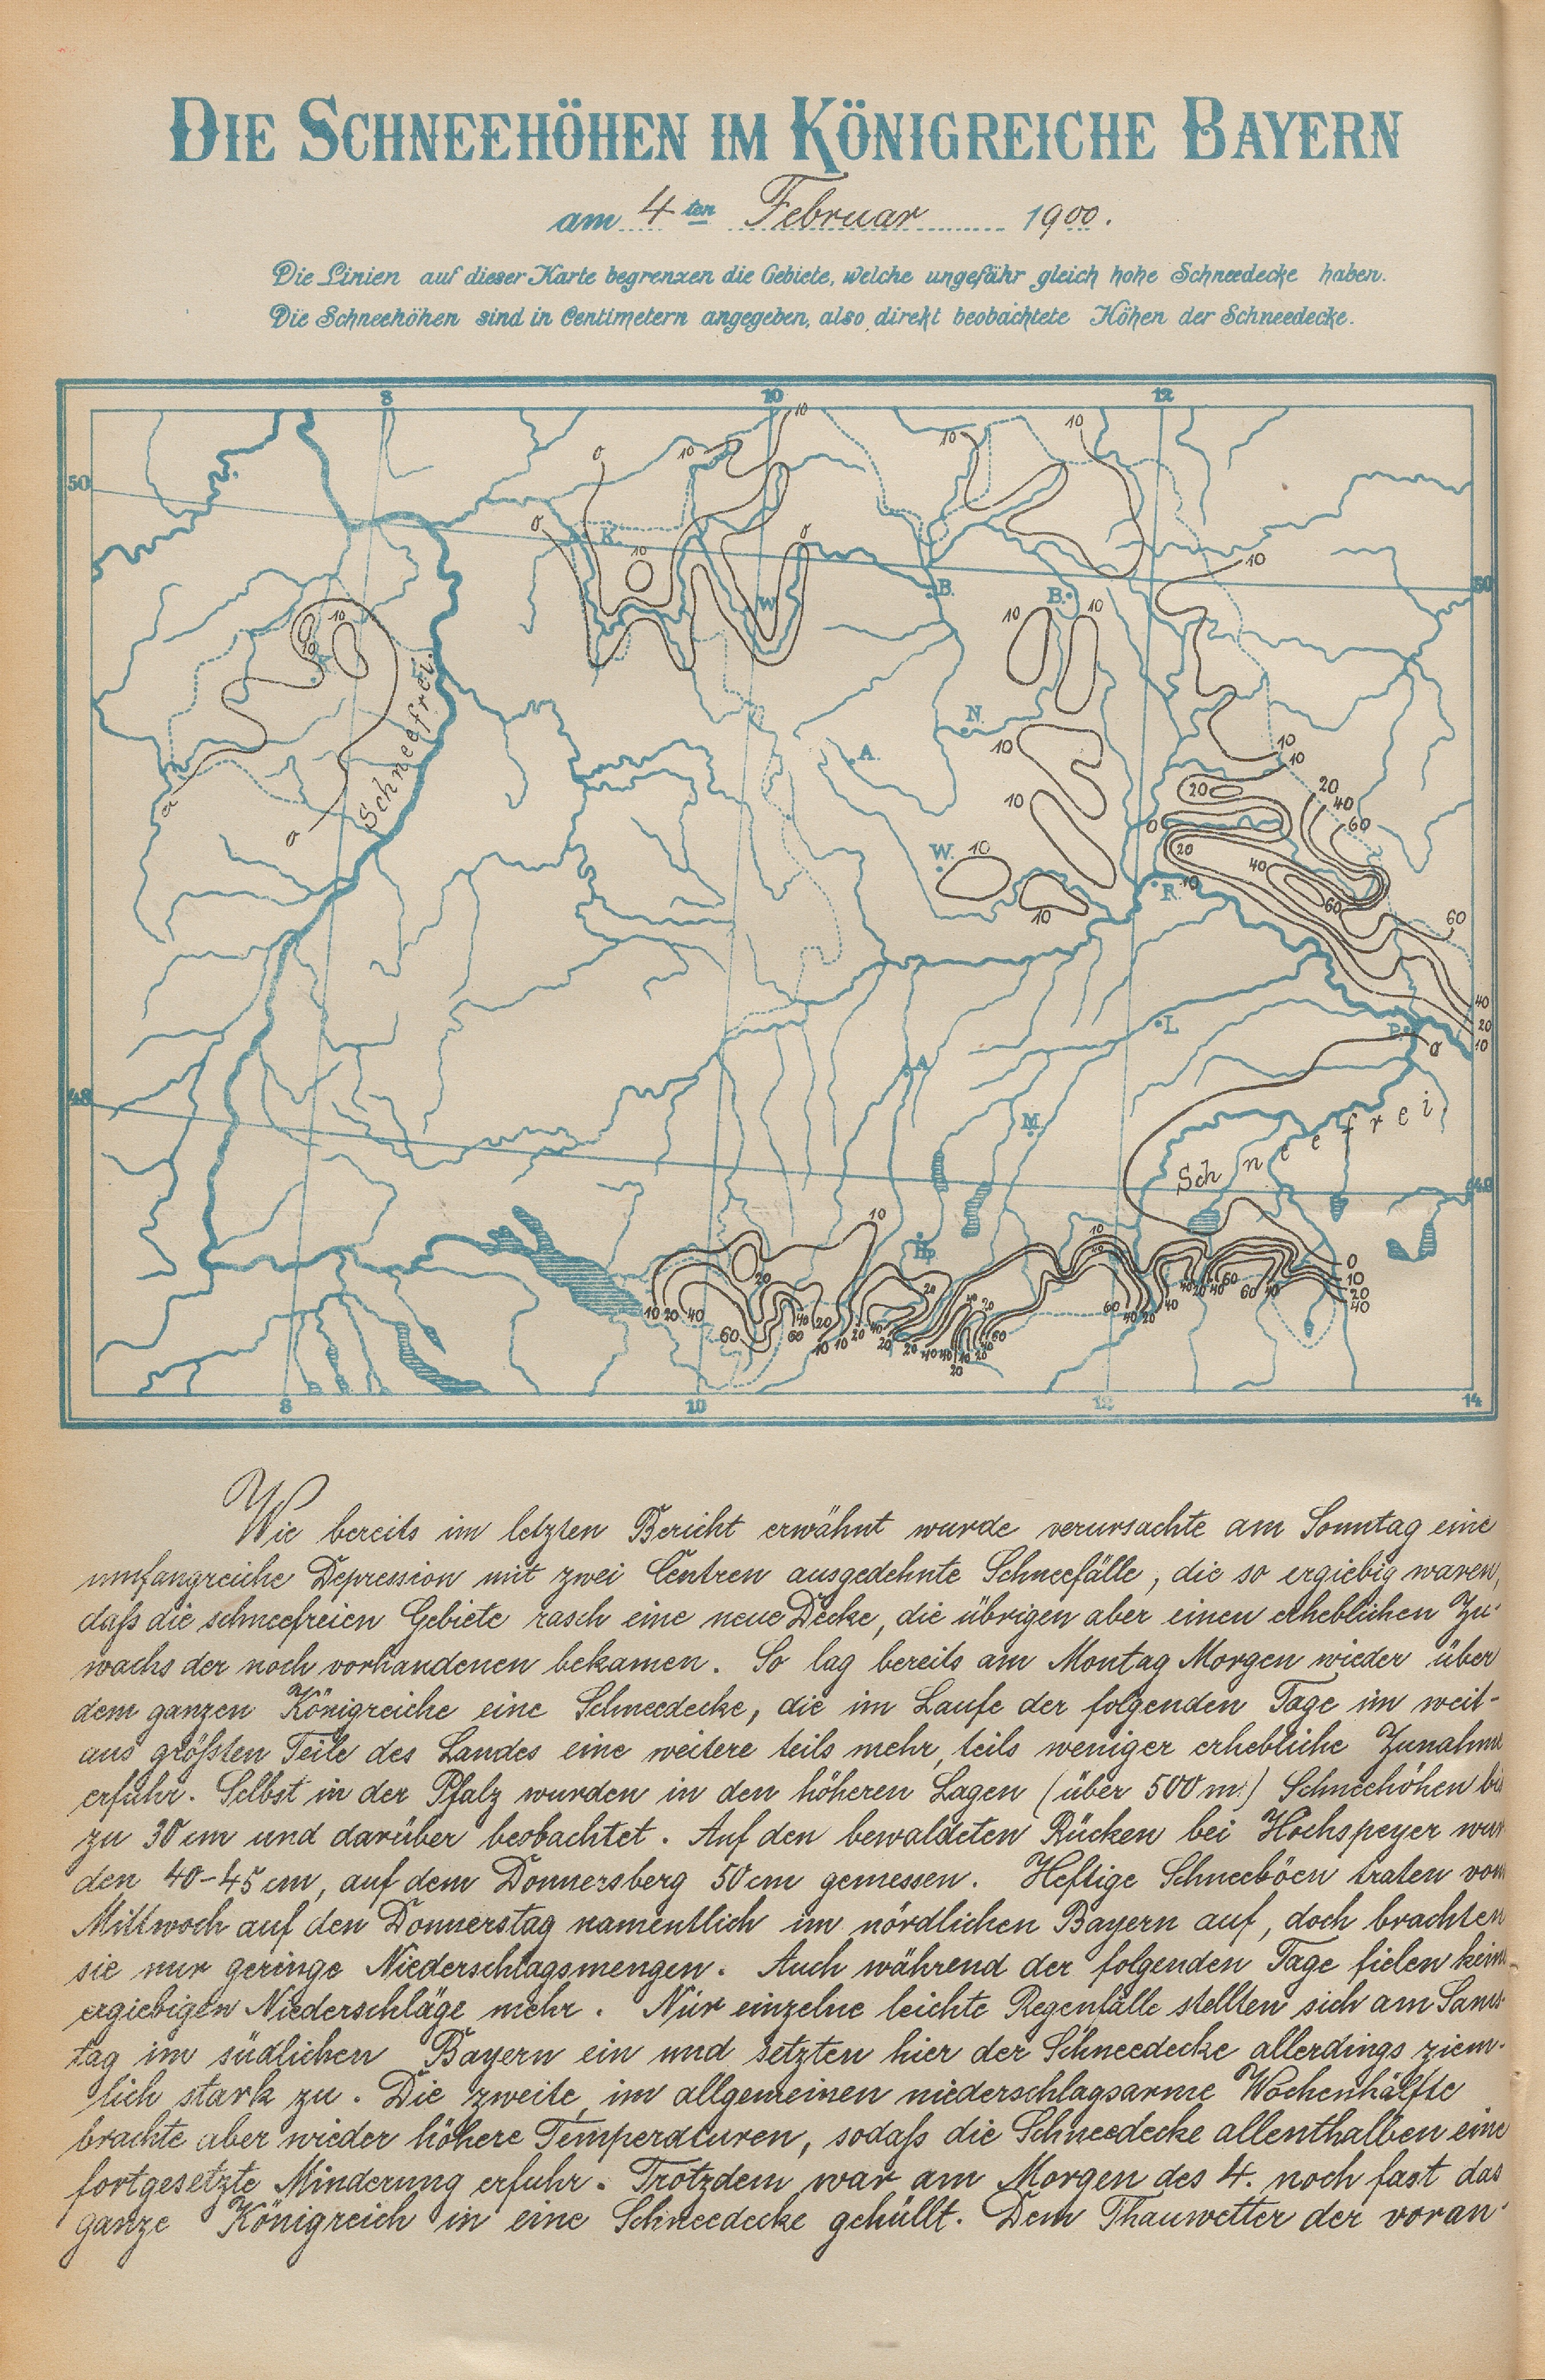 DIE SCHNEEHÖHEN IM KÖNIGREICHE BAYERN
am 4ten Februar 1900.
Die Linien auf dieser Karte begrenzen die Gebiete, welche ungefähr gleich hohe Schneedecke haben.
Die Schneehöhen sind in Centimetern angegeben, also direkt beobachtete Höhen der Schneedecke.
8 10 12
10 10 10
0 10
50
0
K. 10 0
10
50
W. B. B. 10
10
10
10
Schneefrei.
N.
10
10
A.
10
20
20
40
10
60
0
0
0
W. 10
20
40
R. 10
60
10
60
40
L.
20
P.
10
0
A.
48
M.
Schneefrei
48
10
10
P.
20
20
0
10
20
40
10 20 40
60
8 10 12 14
Wie bereits im letzten Bericht erwähnt wurde verursachte am Sonntag eine
umfangreiche Depression mit zwei Centren ausgedehnte Schneefälle, die so ergiebig waren,
daß die schneefreien Gebiete rasch eine neue Decke, die übrigen aber einen erheblichen Zu-
wachs der noch vorhandenen bekamen. So lag bereits am Montag Morgen wieder über
dem ganzen Königreiche eine Schneedecke, die im Laufe der folgenden Tage im weit-
aus größten Teile des Landes eine weitere teils mehr, teils weniger erhebliche Zunahme
erfuhr. Selbst in der Pfalz wurden in den höheren Lagen (über 500 m.) Schneehöhen bis
zu 30 cm und darüber beobachtet. Auf den bewaldeten Rücken bei Hochspeyer wur
den 40-45 cm, auf dem Donnersberg 50 cm gemessen. Heftige Schneeböen traten vom
Mittwoch auf den Donnerstag namentlich im nördlichen Bayern auf, doch brachten
sie nur geringe Niederschlagsmengen. Auch während der folgenden Tage fielen keine
ergiebigen Niederschläge mehr. Nur einzelne leichte Regenfälle stellten sich am Sams-
tag im südlichen Bayern ein und setzten hier der Schneedecke allerdings ziem-
lich stark zu. Die zweite, im allgemeinen niederschlagsarme Wochenhälfte
brachte aber wieder höhere Temperaturen, sodaß die Schneedecke allenthalben eine
fortgesetzte Minderung erfuhr. Trotzdem war am Morgen des 4. noch fast das
ganze Königreich in eine Schneedecke gehüllt. Dem Thauwetter der voran-